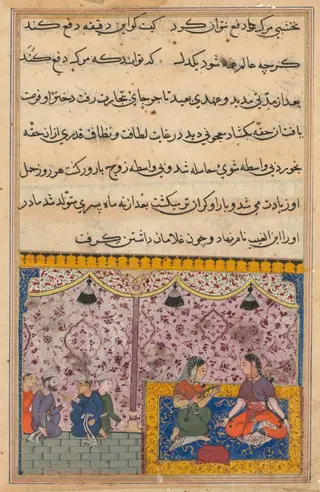 نخشبی مرک را که دفع تواند کرد کیست کو این دقیقه دفع کند
کرچه عالم همه شود یکدل که تواند که مرک دفع کند
بعد از مدتی مدید و عهدی بعید تاجر جای بتجارت رفت دختر او فرصت
یافت از حقه بکشاد در غایت لطافت و نظافت قدری از ان حقه
بخورد بی واسطه شوی حامله شد و بی واسطه زوج بارور کشت هر روز حمل
او زیادت می شد و بار او کران تر میکشت بعد از نه ماه پسری متولد شد مادر
او را ابن الغیب نام نهاد و چون غلامان داشتن کرفت